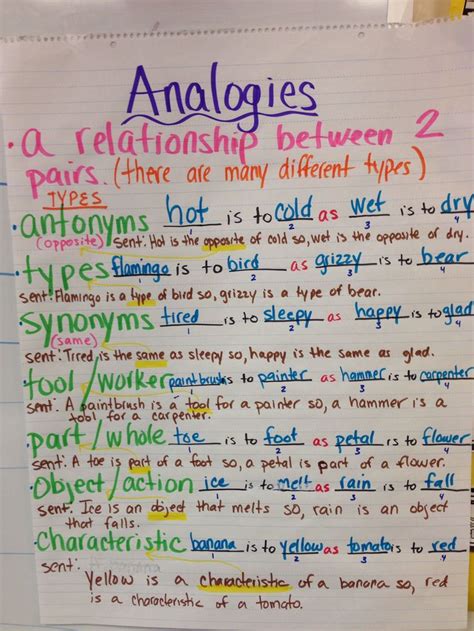 Analogies
• a relationship between 2
pairs. (there are many different types)
TYPES
• antonyms hot is to cold as wet is to dry
1 2 3 4
(opposite) sent: Hot is the opposite of cold so, wet is the opposite of dry.
• types flamingo is to bird as grizzy is to bear
1 2 3 4
sent: Flamingo is a type of bird so, grizzy is a type of bear.
• Synonyms tired is to sleepy as happy is to glad
1 2 3 4
(same)
sent: Tired is the same as sleepy so, happy is the same as glad.
• tool/worker paintbrush is to painter as hammer is to carpenter
1 2 3 4
sent: A paintbrush is a tool for a painter so, a hammer is a
tool for a carpenter.
• part/whole toe is to foot as petal is to flower
1 2 3 4
sent: A toe is part of a foot so, a petal is part of a flower.
• Object/action ice is to melt as rain is to fall
1 2 3 4
sent: Ice is an object that melts so, rain is an object
that falls.
• characteristic banana is to yellow as tomato is to red
1 2 3 4
sent:
Yellow is a characteristic of a banana so, red
is a characteristic of a tomato.